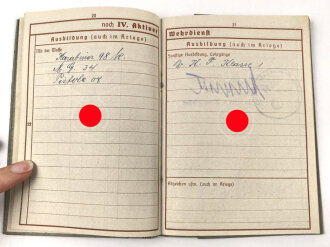 20
noch IV. Aktiver
Ausbildung (auch im Kriege)
Mit der Waffe
Karabiner 98 k
M. G. 34
Pistole 08
21
Wehrdienst
Ausbildung (auch im Kriege)
Sonstige Ausbildung, Lehrgänge
Klasse 1
Abzeichen usw. (auch im Kriege)